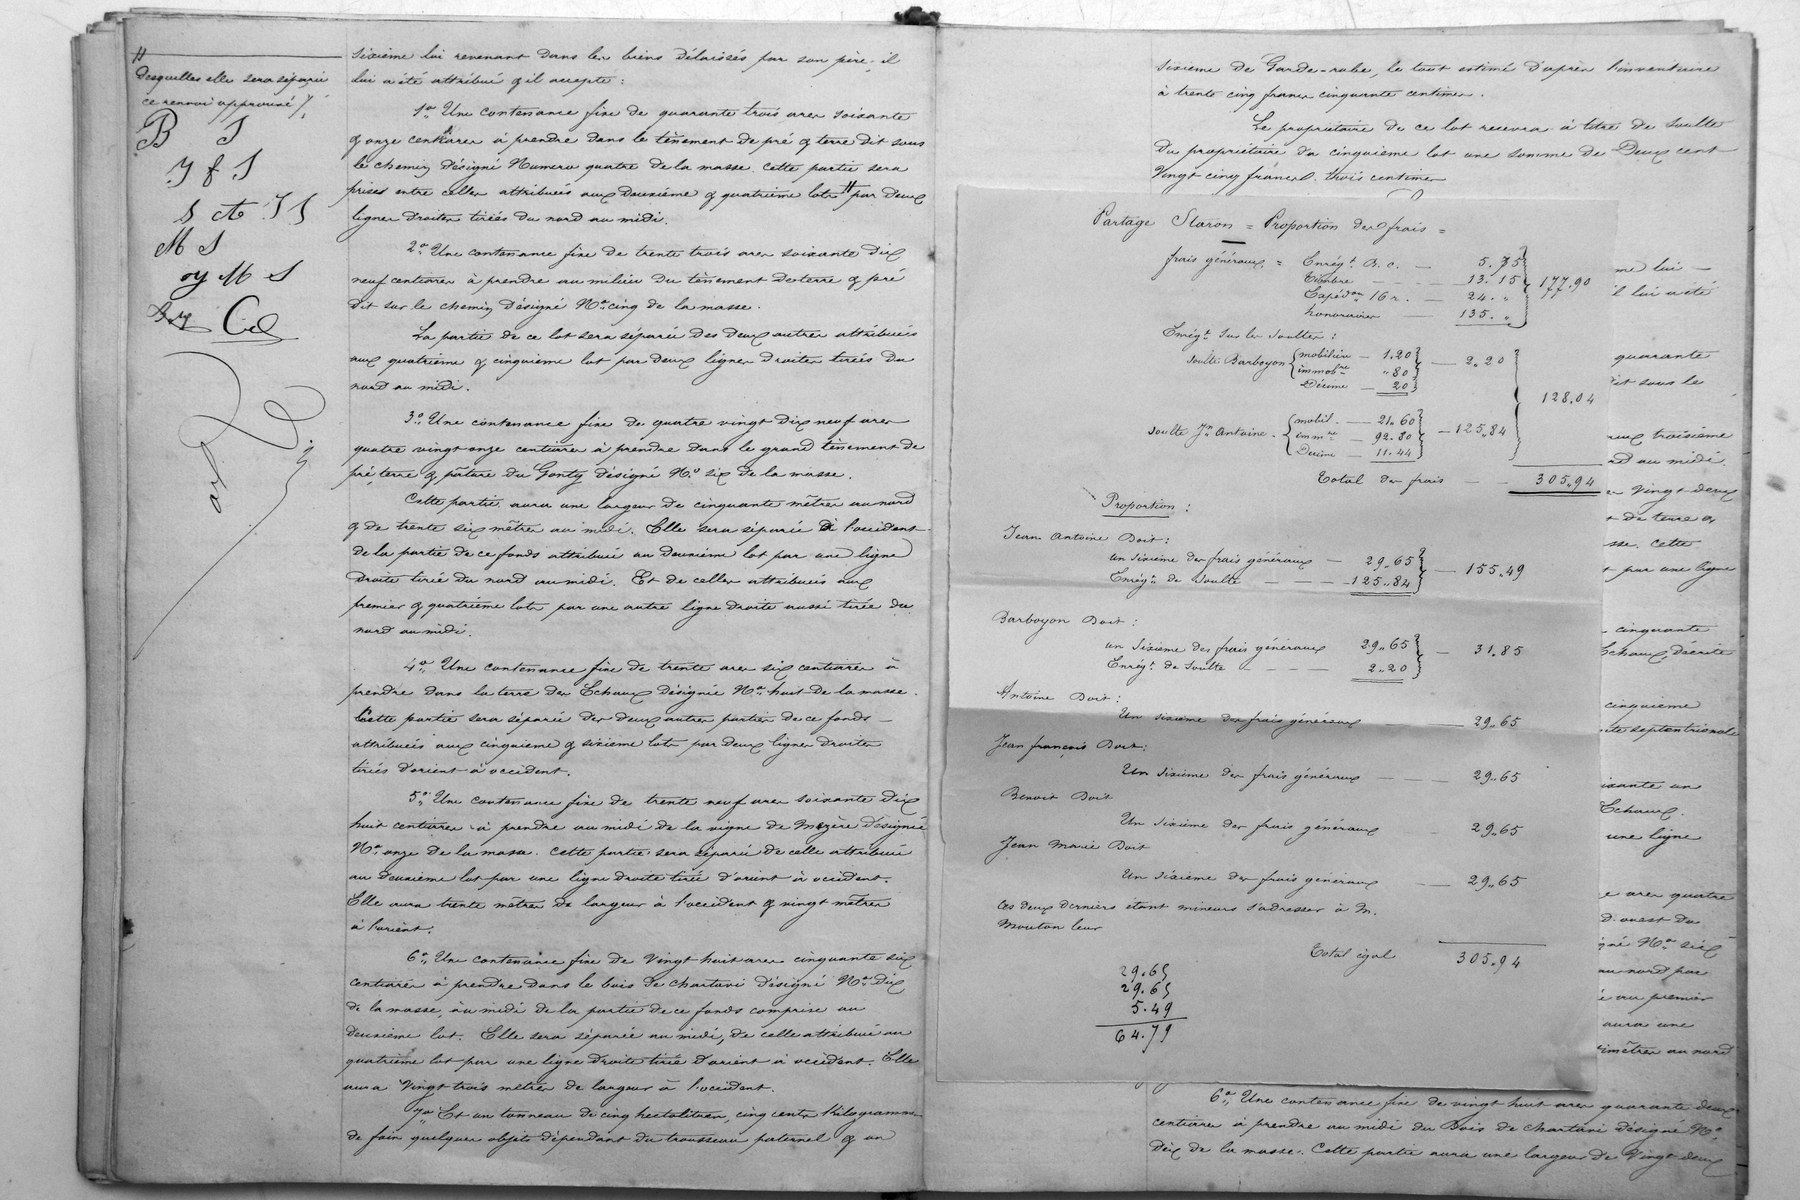 desquelles elle sera séparée
ce renvoi approuvé /.
B J
J f S
S ct J S
M S
M S
sixième lui revenant dans les biens délaissés par son père, il
lui a été attribué & il accepte :
1o. Une contenance fixe de quarante trois ares soixante
& onze centiares à prendre dans le tènement de pré & terre dit sous
le chemin désigné Numero quatre de la masse. Cette partie sera
prises entre celles attribuées aux deuxième & quatrième lots # par deux
lignes droites tirées du nord au midi.
2o. Une contenance fixe de trente trois ares soixante dix
neuf centiares à prendre au milieu du tènement de terre & pré
dit sur le chemin désigné No. cinq de la masse.
La partie de ce lot sera séparée des deux autres attribuées
aux quatrième & cinquième lot par deux lignes droites tirées du
nord au midi.
3o. Une contenance fixe de quatre vingt dix neuf ares
quatre vingt onze centiares à prendre dans le grand tènement de
pré, terre & pâture du Gonty désigné No. six de la masse.
Cette partie aura une largeur de cinquante mètres au nord
& de trente six mètres au midi. Elle sera séparée à l'occident
de la partie de ce fonds attribuée au deuxième lot par une ligne
droite tirée du nord au midi. Et de celles attribuées aux
premier & quatrième lots par une autre ligne droite aussi tirée du
nord au midi.
4o. Une contenance fixe de trente ares six centiares à
prendre dans la terre des Echaux désignée No. huit de la masse.
Cette partie sera séparée des deux autres parties de ce fonds
attribuées aux cinquième & sixième lots par deux lignes droites
tirées d'orient à occident.
5o. Une contenance fixe de trente neuf ares soixante dix
huit centiares à prendre au midi de la vigne de Mozère désignée
No. onze de la masse. Cette partie sera séparée de celle attribuée
au deuxième lot par une ligne droite tirée d'orient à occident.
Elle aura trente mètres de largeur à l'occident & vingt mètres
à l'orient.
6o. Une contenance fixe de vingt huit ares cinquante six
centiares à prendre dans le bois de Chartavi désigné No. dix
de la masse, au midi de la partie de ce fonds comprise au
deuxième lot. Elle sera séparée au midi, de celle attribuée au
quatrième lot par une ligne droite tirée d'orient à occident. Elle
aura vingt trois mètres de largeur à l'occident.
7o. Et un tonneau de cinq hectolitres, cinq cents kilogrammes
de foin quelques objets dépendant du trousseau paternel & un
sixième de Garde-robe, le tout estimé d'après l'inventaire
à trente cinq francs cinquante centimes.
Le propriétaire de ce lot recevra à titre de soulte
du propriétaire du cinquième lot une somme de Deux cent
vingt cinq francs trois centimes
Partage Staron = Proportion des frais =
frais généraux = Enrégt. B. c. — 5.75
Timbre — 13.15
Expédon. 16 r. — 24. "
honoraires — 135. "
177.90
Enrégt. sur les soultes :
soulte Barboyon mobilière — 1.20
immobre ".80
Décime — 20
— 2.20
soulte Jn. Antoine mobil. — 21.60
immre — 92.80
Décime — 11.44
— 125.84
128.04
Total des frais — 305.94
Proportion :
Jean Antoine Doit :
un sixième des frais généraux — 29.65
Enrégt. de soulte — 125.84
— 155.49
Barboyon Doit :
un sixième des frais généraux 29.65
Enrégt. de soulte — 2.20
— 31.85
Antoine Doit :
Un sixième des frais généraux — 29.65
Jean françois Doit :
Un sixième des frais généraux — 29.65
Benoit Doit
Un sixième des frais généraux — 29.65
Jean Marie Doit
Un sixième des frais généraux — 29.65
Ces deux derniers étant mineurs s'adresser à M.
Mouton leur
Total égal 305.94
29.65
29.65
5.49
64.79
me lui
il lui a été
quarante
dit sous le
aux troisième
nord au midi.
vingt deux
de terre &
masse. Cette
par une ligne
cinquante
Echaux désignée
cinquième
septentrionale
soixante un
Echaux.
une ligne
ares quatre
ouest du
No. six
au nord par
au premier
aura une
au nord
6o. Une contenance fixe de vingt huit ares quarante deux
centiares à prendre au midi du Bois de Chartavi désigné No.
dix de la masse. Cette partie aura une largeur de vingt deux